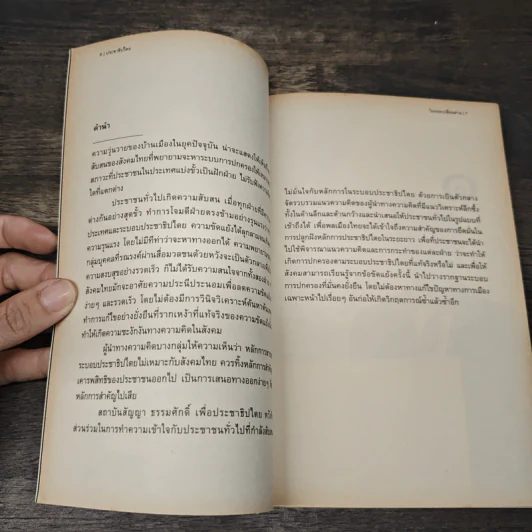 6 | ประชาธิปไทย
คำนำ
ความวุ่นวายของบ้านเมืองในยุคปัจจุบัน น่าจะแสดงให้เห็นถึง
สับสนของสังคมไทยที่พยายามจะหาระบบการปกครอง
สภาวะที่ประชาชนในประเทศแบ่งขั้วเป็นฝักฝ่าย ไม่รับฟัง
ใดที่แตกต่าง
ประชาชนทั่วไปเกิดความสับสน เมื่อทุกฝ่าย
ต่างกันอย่างสุดขั้ว ทำการโจมตีฝ่ายตรงข้ามอย่างรุนแรง
ประเทศและระบอบประชาธิปไตย ความขัดแย้งได้ลุกลาม
ความรุนแรง โดยไม่มีทีท่าว่าจะหาทางออกได้ ความพยายาม
กลุ่มบุคคลที่รณรงค์ผ่านสื่อมวลชนด้วยหวังจะเป็นตัวกลาง
ความสงบสุขอย่างรวดเร็ว ก็ไม่ได้รับความสนใจจากทั้งสอง
สังคมไทยมักจะอาศัยความประนีประนอมเพื่อลดความขัดแย้ง
ง่ายๆ และรวดเร็ว โดยไม่ต้องมีการวินิจวิเคราะห์ต้นตอ
ทำการแก้ไขอย่างยั่งยืนที่รากเหง้าที่แท้จริงของความขัดแย้ง
ทำให้เกิดความชะงักงันทางความคิดในสังคม
ผู้นำทางความคิดบางกลุ่มให้ความเห็นว่า หลักการสากล
ระบอบประชาธิปไตยไม่เหมาะกับสังคมไทย ควรทิ้งหลักการสำคัญ
เคารพสิทธิของประชาชนออกไป เป็นการเสนอทางออกง่ายๆ
หลักการสำคัญไปเสีย
สถาบันสัญญา ธรรมศักดิ์ เพื่อประชาธิปไตย
ส่วนร่วมในการทำความเข้าใจกับประชาชนทั่วไปที่กำลังสับสน
ไม่มั่นใจกับหลักการในระบอบประชาธิปไตย ด้วยการเป็นตัวกลาง
จัดรวบรวมแนวความคิดของผู้นำทางความคิดที่มีแนววิเคราะห์ลึกซึ้ง
ทั้งในด้านลึกและด้านกว้าง และนำเสนอให้ประชาชนทั่วไปในรูปแบบที่
เข้าถึงได้ เพื่อพลเมืองไทยจะได้เข้าใจถึงความสำคัญของการยึดมั่นใน
การปลูกฝังหลักการประชาธิปไตยในระยะยาว เพื่อที่ประชาชนจะได้นำ
ไปใช้พิจารณาแนวความคิดและการกระทำของแต่ละฝ่าย ว่าจะทำให้
เกิดการปกครองตามระบอบประชาธิปไตยที่แท้จริงหรือไม่ และเพื่อให้
สังคมสามารถเรียนรู้จากข้อขัดแย้งครั้งนี้ นำไปวางรากฐานระบอบ
การปกครองที่มั่นคงยั่งยืน โดยไม่ต้องหาทางแก้ไขปัญหาทางการเมือง
เฉพาะหน้าไปเรื่อยๆ อันก่อให้เกิดวิกฤตการณ์ซ้ำแล้วซ้ำอีก